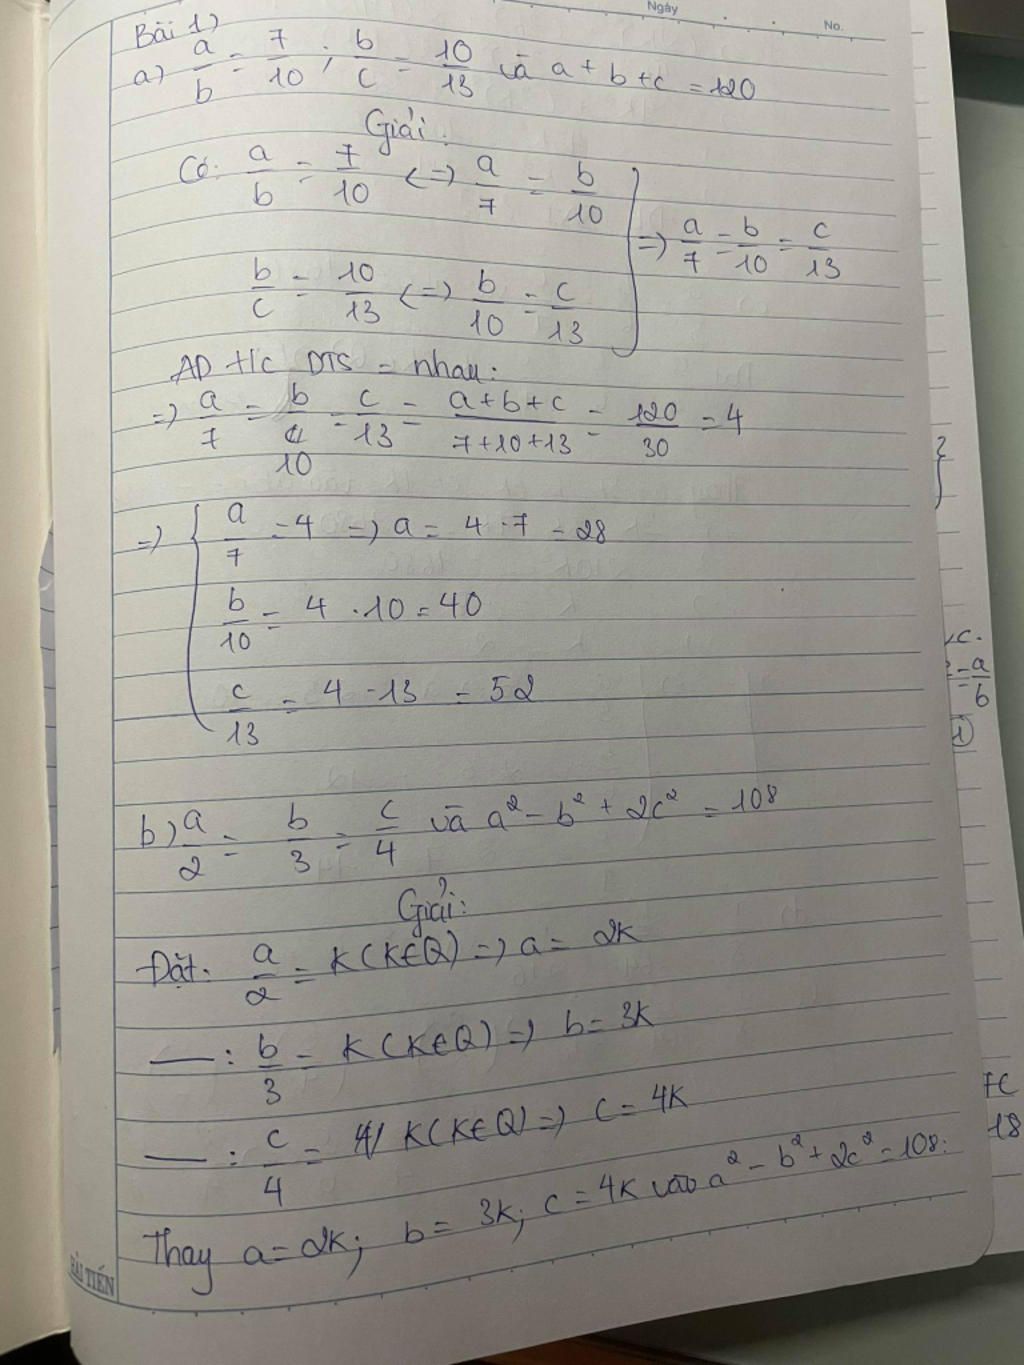 Ngày
No.
Bài 1)
a) a/b = 7/10 ; b/c = 10/13 và a + b + c = 120
Giải:
Có: a/b = 7/10 <=> a/7 = b/10
=> a/7 = b/10 = c/13
b/c = 10/13 <=> b/10 = c/13
AD t/c DTS = nhau:
=> a/7 = b/10 = c/13 = a+b+c/7+10+13 = 120/30 = 4
=> { a/7 = 4 => a = 4 . 7 = 28
b/10 = 4 . 10 = 40
c/13 = 4 - 13 = 52
b) a/2 = b/3 = c/4 và a² - b² + 2c² = 108
Giải:
Đặt: a/2 = K (K∈Q) => a = 2K
— : b/3 = K (K∈Q) => b = 3K
— : c/4 = K (K∈Q) => c = 4K
Thay a = 2K; b = 3K; c = 4K vào a² - b² + 2c² = 108:
HẢI TIẾN
c.
= a/b
1)
7C
18